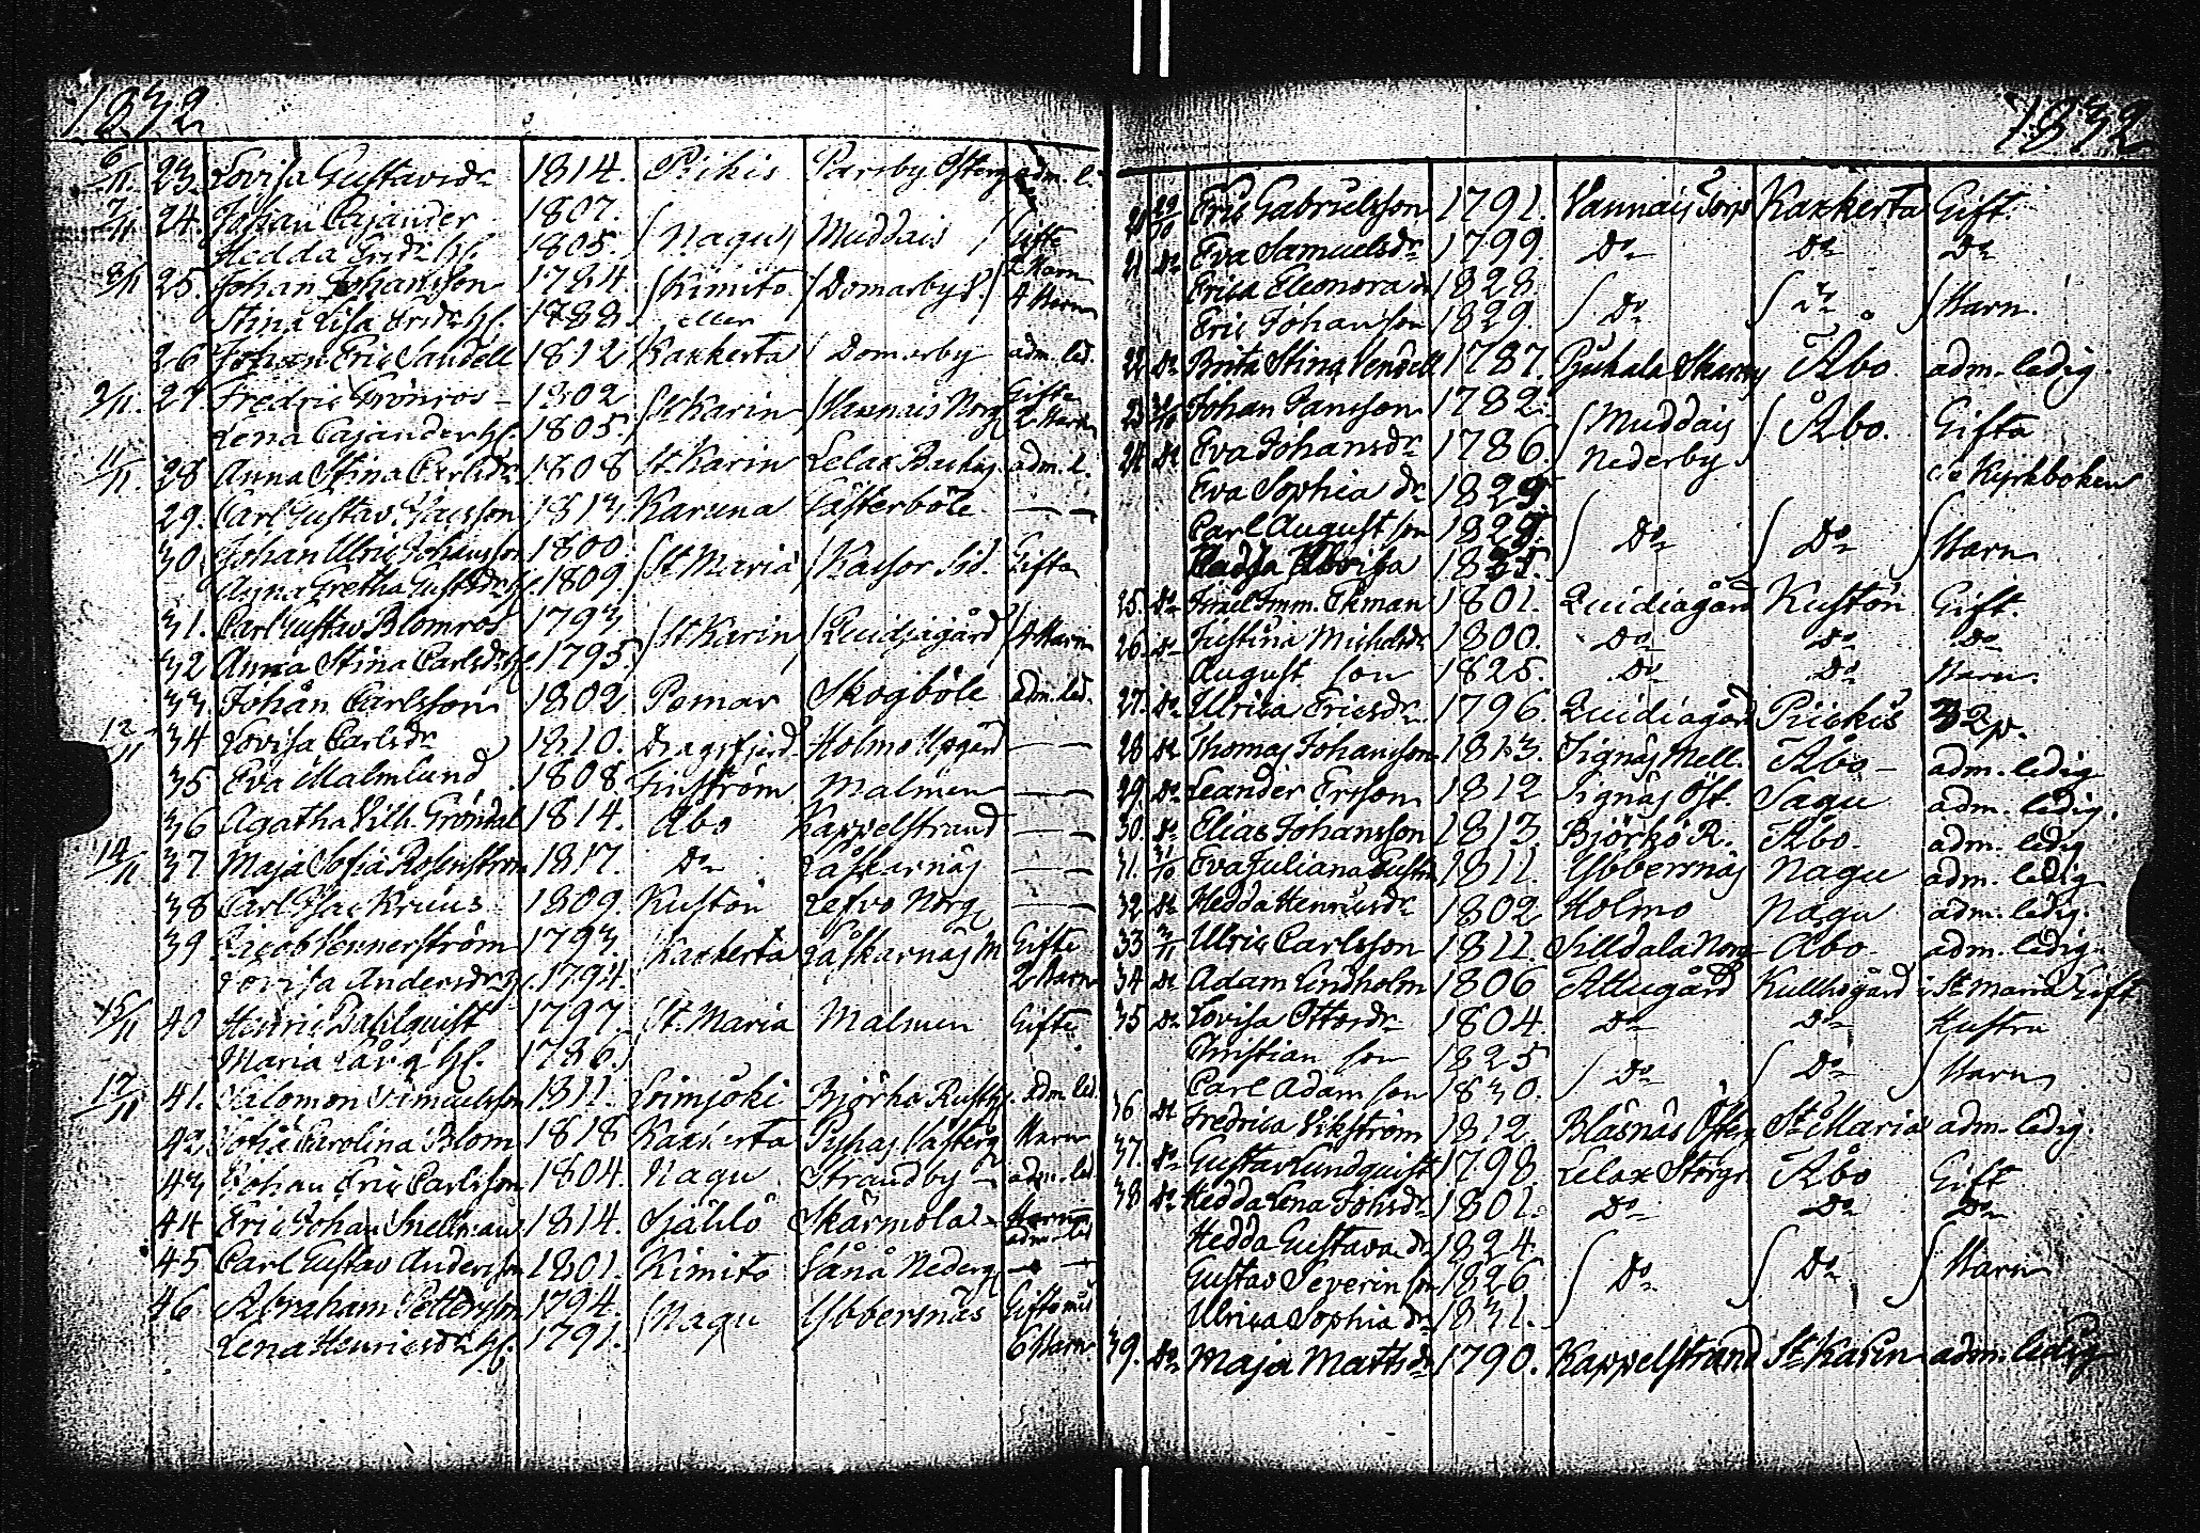 1832
6/11 23. Lovisa Gustavsdr 1814. Pikis Parsby Österg adm. l.
7/11 24. Johan Cajander 1807. Nagu Muddais Gifte
Hedda Ersdr hf. 1805. 2 Barn
8/11 25. Johan Johansson 1784. Kimito Domarby 4 Barn
Stina Lisa Ersdr hf. 1788. eller
26 Johan Eric Sandell 1812 Kaxkerta Domarby adm. led.
9/11. 27. Fredric Grönros 1802 St Karin Vannais Norg Gifte
Lena Cajander hf. 1805. 2 Barn
11/11. 28 Anna Stina Carlsdr 1808 St. Karin Lelax adm. l.
29. Carl Gustav Isacsson 1813 Karuna Västerböle — —
30. Johan Ulric Johansson 1800 St. Maria Kassor Gifta
Anna Gretha Gustdr hf. 1809
31. Carl Gustav Blomros 1793 St. Karin Quidjagård 4 Barn
32 Anna Stina Carlsdr hf. 1795.
33. Johan Carlsson 1802 Pemar Skogböle adm. led.
12/11 34 Lovisa Carlsdr 1810. Dragsfjerd. Holmo Uppgård — —
35 Eva Malmlund 1808. Finström Malmen — —
36 Agatha Vilh. Gröndal 1814. Åbo Kappelstrand — —
14/11 37 Maja Sofia Rosenström 1817. Do Låskarnäs — —
38 Carl Isac Kruus 1809. Kustön Lefvo Norg — —
39 Jacob Wennerström 1793. Kaxkerta Låskarnäs M Gifte
Lovisa Andersdr hf. 1794. 2 Barn
15/11 40 Henric Dahlquist 1797. St. Maria Malmen Gifte
Maria Lång hf. 1786.
17/11 41. Salomon Samuelsson 1811. Loimjoki Björko Rusth. adm led.
42. Sofia Carolina Blom 1818 Kaxkerta Pyhas Västerg Barn
43 Johan Eric Carlsson 1804. Nagu. Strandby adm. led.
44 Eric Johan Snellman 1814. Själlö Skärmola Barn adm. led
45 Carl Gustav Andersson 1801. Kimito Sånå Nederg — —
46 Abraham Pettersson 1794. Nagu Ybbersnäs Gifte
Lena Henricsdr hf. 1791. 6 Barn.
1832
20 29/10 Eric Gabrielsson 1791. Vannais Torp Kaxkerta Gift.
21 Do Eva Samuelsdr 1799. Do Do Do
Erica Eleonora dr 1828
Eric Johan son 1829. Do Do Barn.
22 Do Brita Stina Vendell 1787. Pjukala Åbo. adm. ledig.
23 Johan Jansson 1782. Muddais Åbo. Gifta
24 Do Eva Johansdr 1786. Nederby Kyrkboken
Eva Sophia dr
Carl August son Do Do Barn
Lovisa
25. Do Israel Imm. Ekman 1801. Quidiagård Kustön Gift.
26. Do Justina Michelsdr 1800. Do Do Do
August son 1825. Do Do Barn.
27. Do Ulrica Ericsdr 1796. Quidiagård Piickis
28 Do Thomas Johansson 1813. Signäs Mell. Åbo — adm. ledig
29. Do Leander Ersson 1812 Signäs Öst. Sagu adm. ledig.
30. Do Elias Johansson 1813. Björkö R. Åbo. adm. ledig
31. 31/10 Eva Juliana Gustdr 1811. Ybbersnäs Nagu adm. ledig
32 Do Hedda Henricsdr 1802 Holmo Nagu adm. ledig.
33 Ulric Carlsson 1811. Silldala Norg Åbo. adm. ledig.
34 Do Adam Lindholm 1806 Attugård Kullhogård i St Maria Gift
35 Do Lovisa Ottosdr 1804. Do Do Hustru
Christian son 1825
Carl Adam son 1830. Do Do Barn
36 Do Fredrica Vikström 1812. Blåsnäs Österg St Maria adm. ledig.
37. Do Gustav Lundquist 1798 Lelax Storg Åbo Gift
38 Do Hedda Lena Johsdr 1801. Do Do Do
Hedda Gustava dr 1824.
Gustav Severin son 1826 Do Do Barn
Ulrica Sophia dr 1831.
39. Do Maja Mattsdr 1790. Kappelstrand St Karin adm. ledig